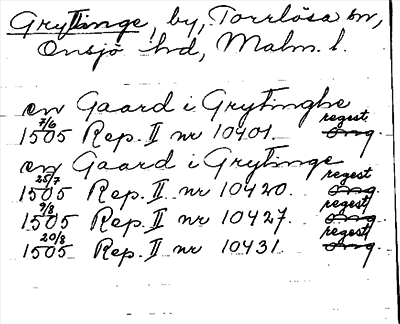 Grytinge, by, Torrlösa sn,
Onsjö hd, Malm. l.
en Gaard i Grytinghe
7/6 1505 Rep. II nr 10401. regest. orig
en Gaard i Grytinge
25/7 1505 Rep. II nr 10420. regest. orig
9/8 1505 Rep. II nr 10427. regest. orig
20/8 1505 Rep. II nr 10431. regest. orig